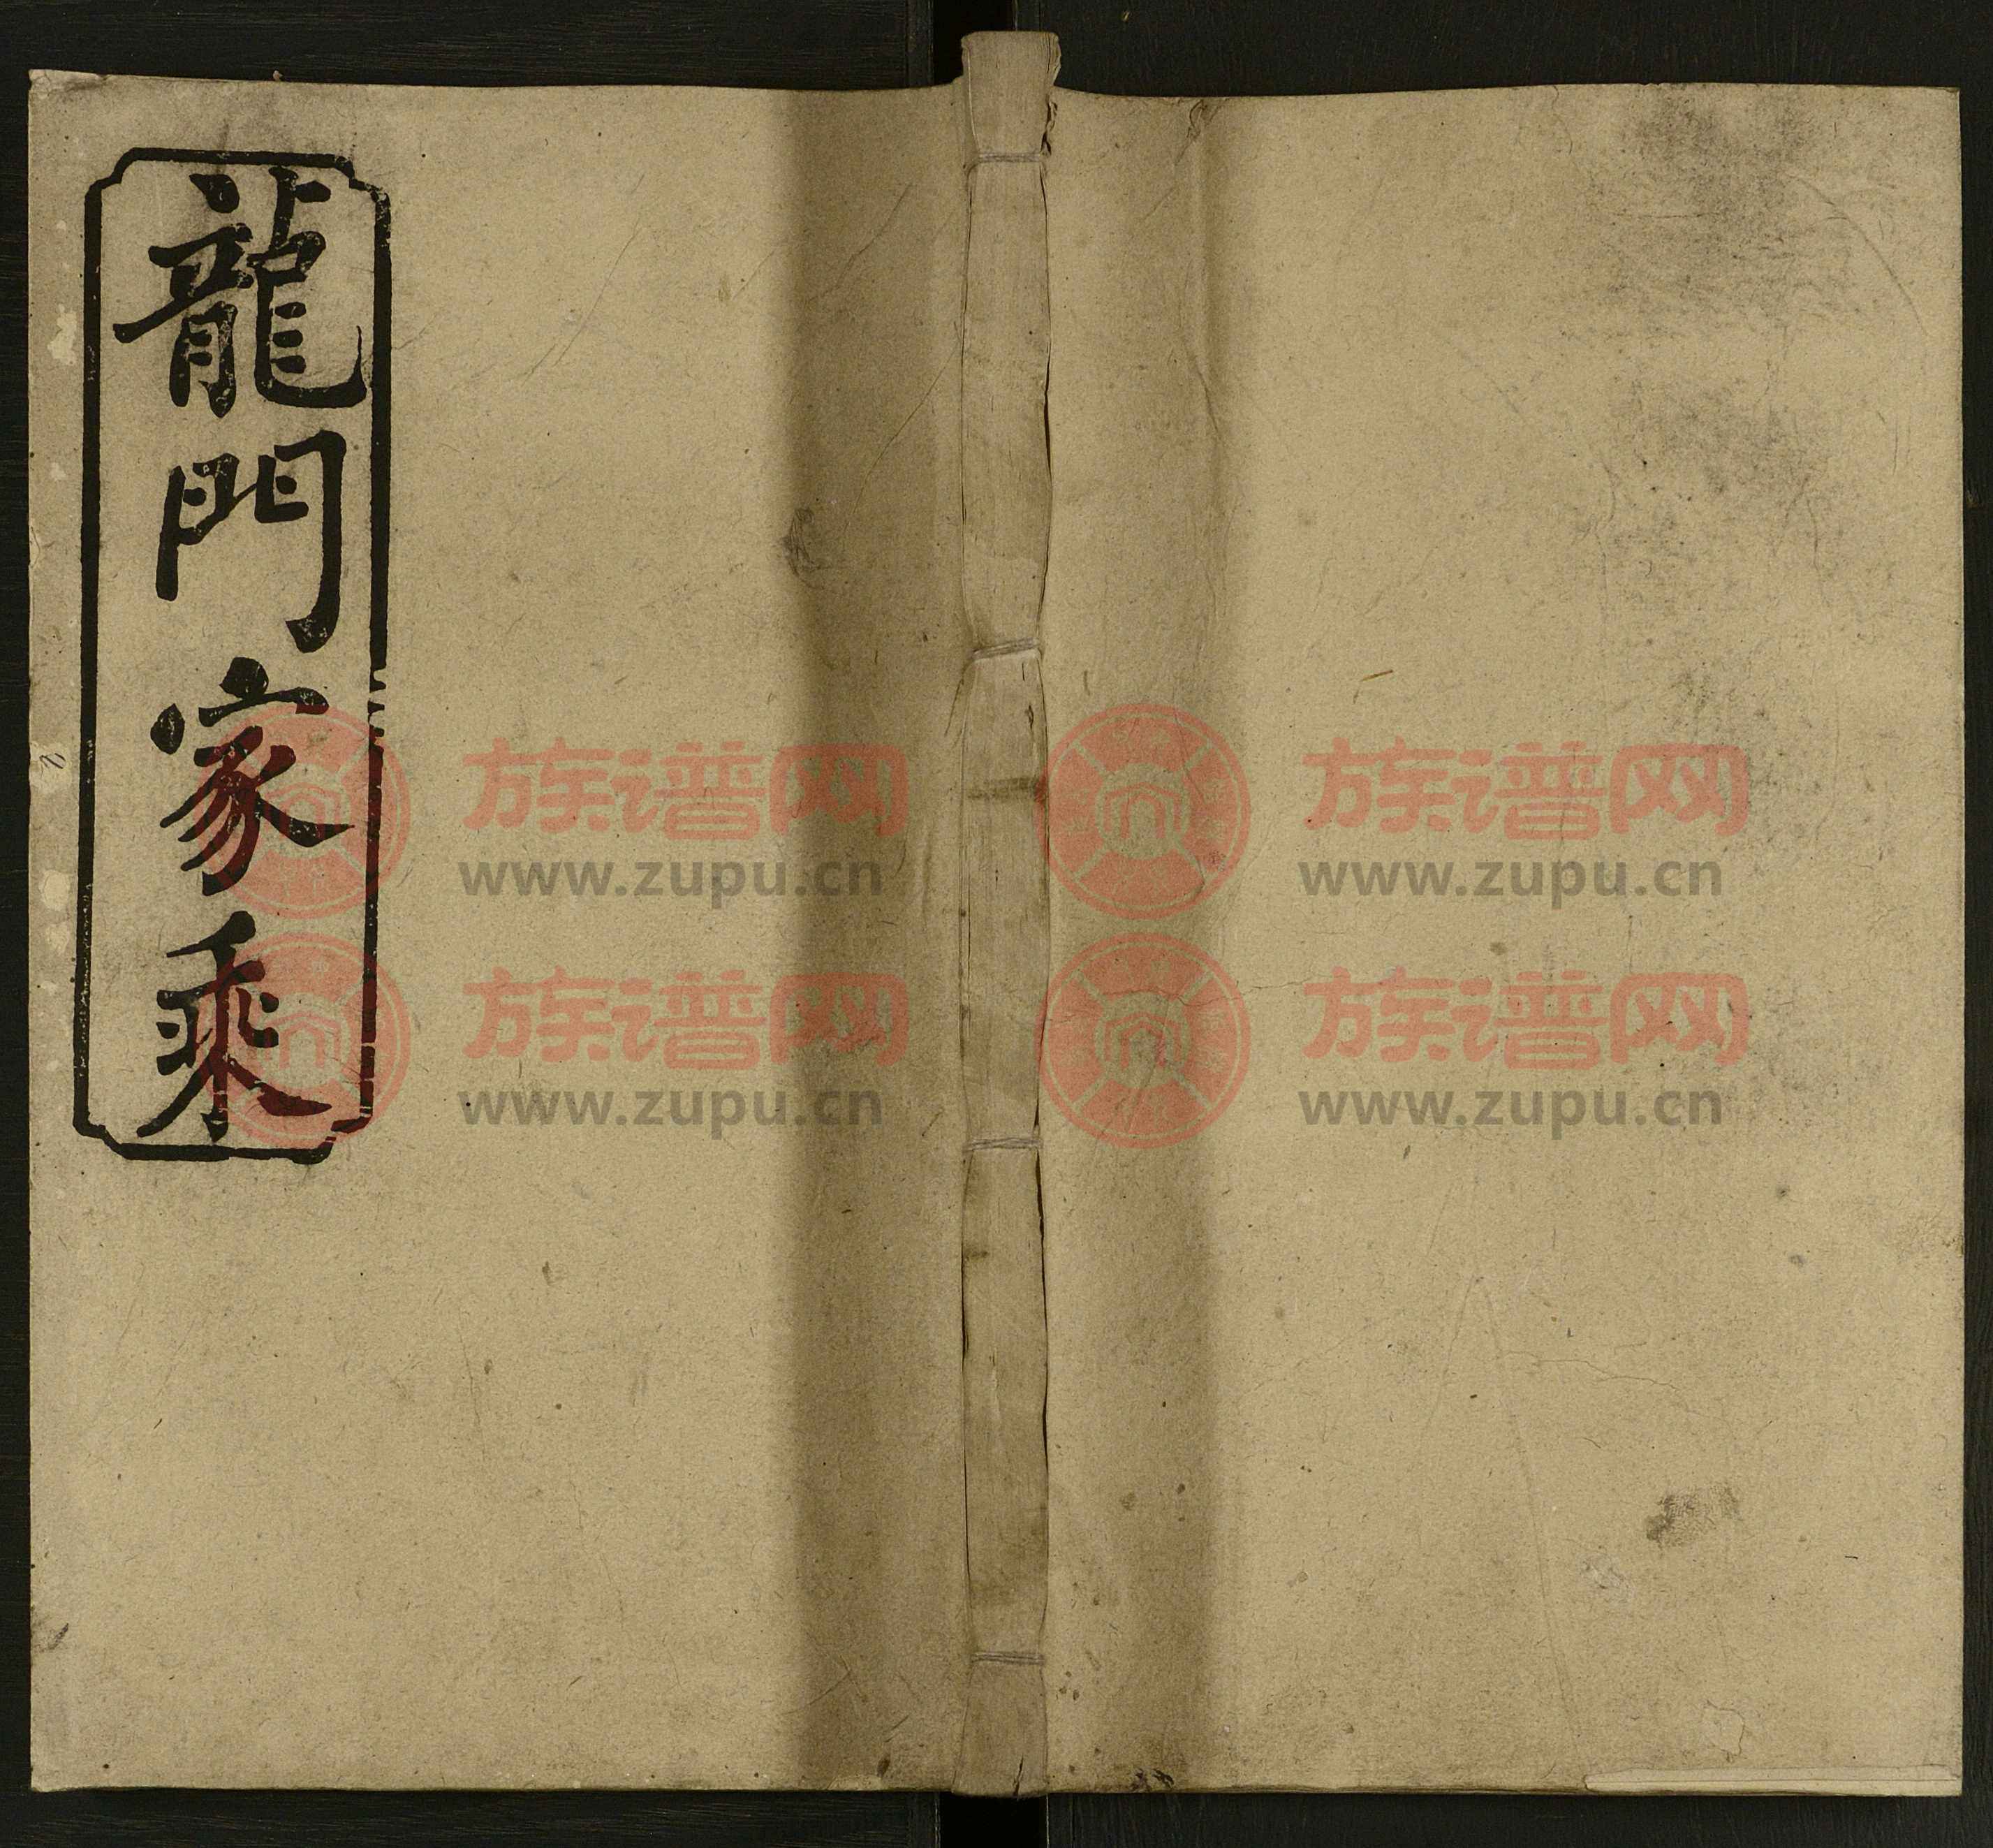 龍門家乘
族谱网
www.zupu.cn
族谱网
www.zupu.cn
族谱网
www.zupu.cn
族谱网
www.zupu.cn